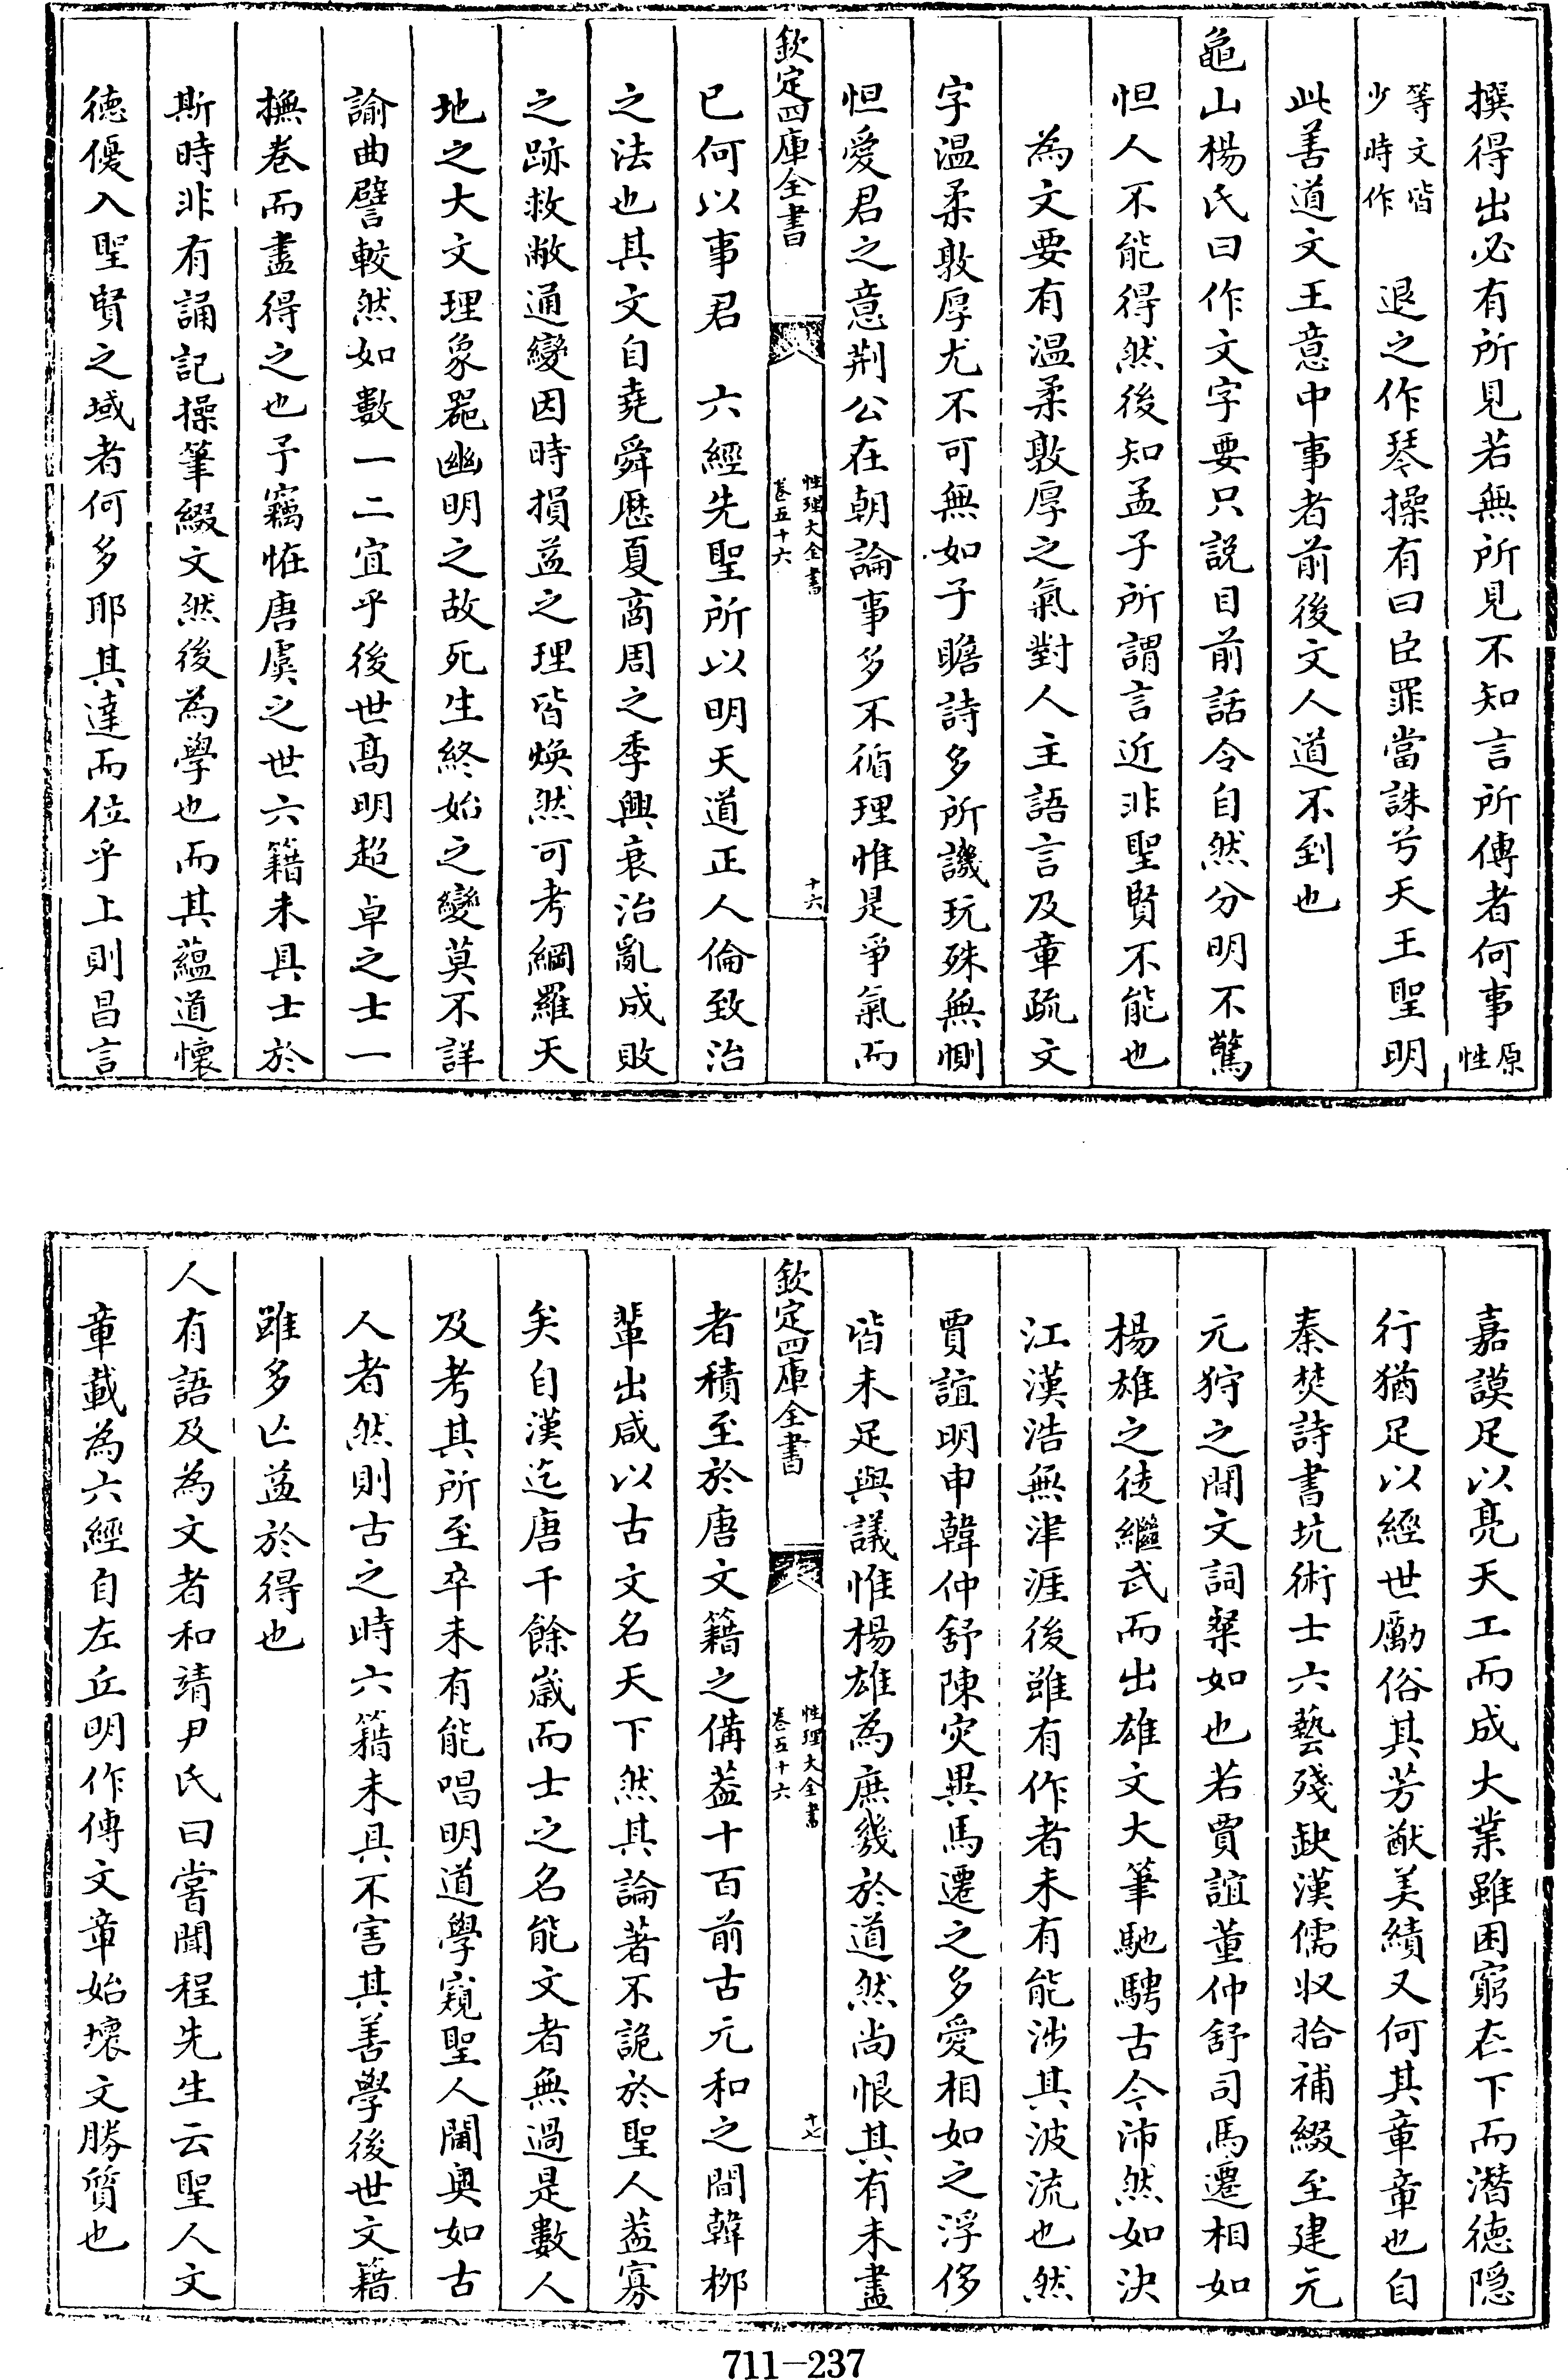 撰得出必有所見若無所見不知言所傳者何事原性
等文皆少時作 退之作琴操有曰臣罪當誅兮天王聖明
此善道文王意中事者前後文人道不到也
龜山楊氏曰作文字要只説目前話令自然分明不驚
怛人不能得然後知孟子所謂言近非聖賢不能也
為文要有温柔敦厚之氣對人主語言及章疏文
字温柔敦厚尤不可無如子瞻詩多所譏玩殊無惻
怛愛君之意荆公在朝論事多不循理惟是爭氣而
欽定四庫全書 性理大全書 卷五十六 十六
已何以事君 六經先聖所以明天道正人倫致治
之法也其文自堯舜歴夏商周之季興衰治亂成敗
之跡救敝通變因時損益之理皆煥然可考綱羅天
地之大文理象器幽明之故死生終始之變莫不詳
諭曲譬較然如數一二宜乎後世髙明超卓之士一
撫卷而盡得之也予竊恠唐虞之世六籍未具士於
斯時非有誦記操筆綴文然後為學也而其蘊道懷
徳優入聖賢之域者何多耶其達而位乎上則昌言
嘉謨足以亮天工而成大業雖困窮在下而潛徳隠
行猶足以經世勵俗其芳猷美績又何其章章也自
秦焚詩書坑術士六藝殘缺漢儒収拾補綴至建元
元狩之間文詞粲如也若賈誼董仲舒司馬遷相如
楊雄之徒繼武而出雄文大筆馳騁古今沛然如決
江漢浩無津涯後雖有作者未有能涉其波流也然
賈誼明申韓仲舒陳灾異馬遷之多愛相如之浮侈
皆未足與議惟楊雄為庶幾於道然尚恨其有未盡
欽定四庫全書 性理大全書 卷五十六 十七
者積至於唐文籍之備葢十百前古元和之間韓栁
輩出咸以古文名天下然其論著不詭於聖人葢寡
矣自漢迄唐千餘嵗而士之名能文者無過是數人
及考其所至卒未有能唱明道學窺聖人閫奥如古
人者然則古之時六籍未具不害其善學後世文籍
雖多亡益於得也
人有語及為文者和靖尹氏曰嘗聞程先生云聖人文
章載為六經自左丘明作傳文章始壊文勝質也
711-237